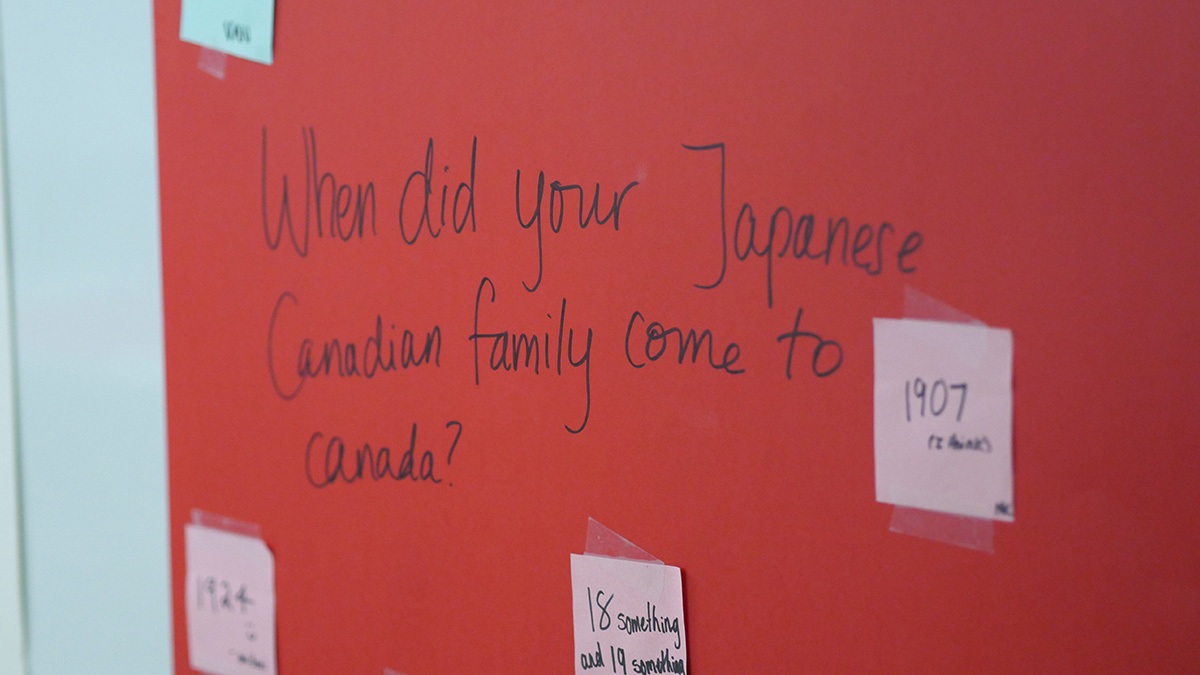 When did your Japanese
Canadian family come to
canada?
1907
(I think)
1924
18 something
and 19 something